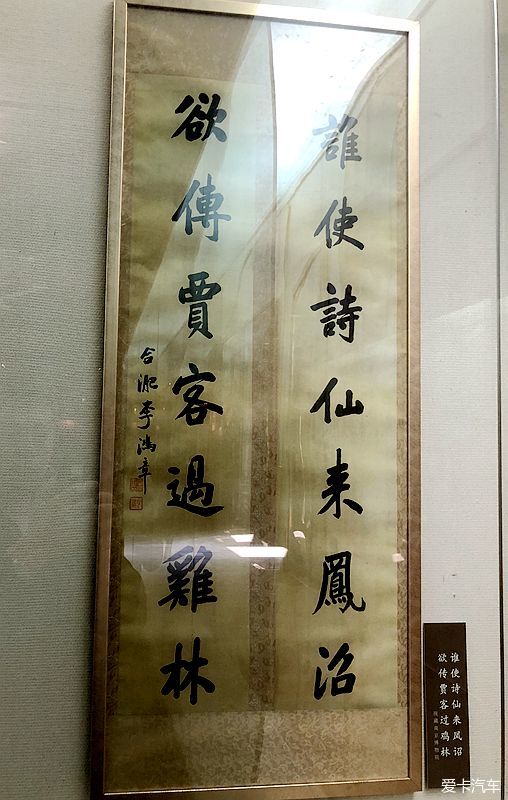 誰使詩仙来鳳沼
欲傳賈客過雞林
合淝李鴻章
谁使诗仙来凤诏
欲传贾客过鸡林
爱卡汽车